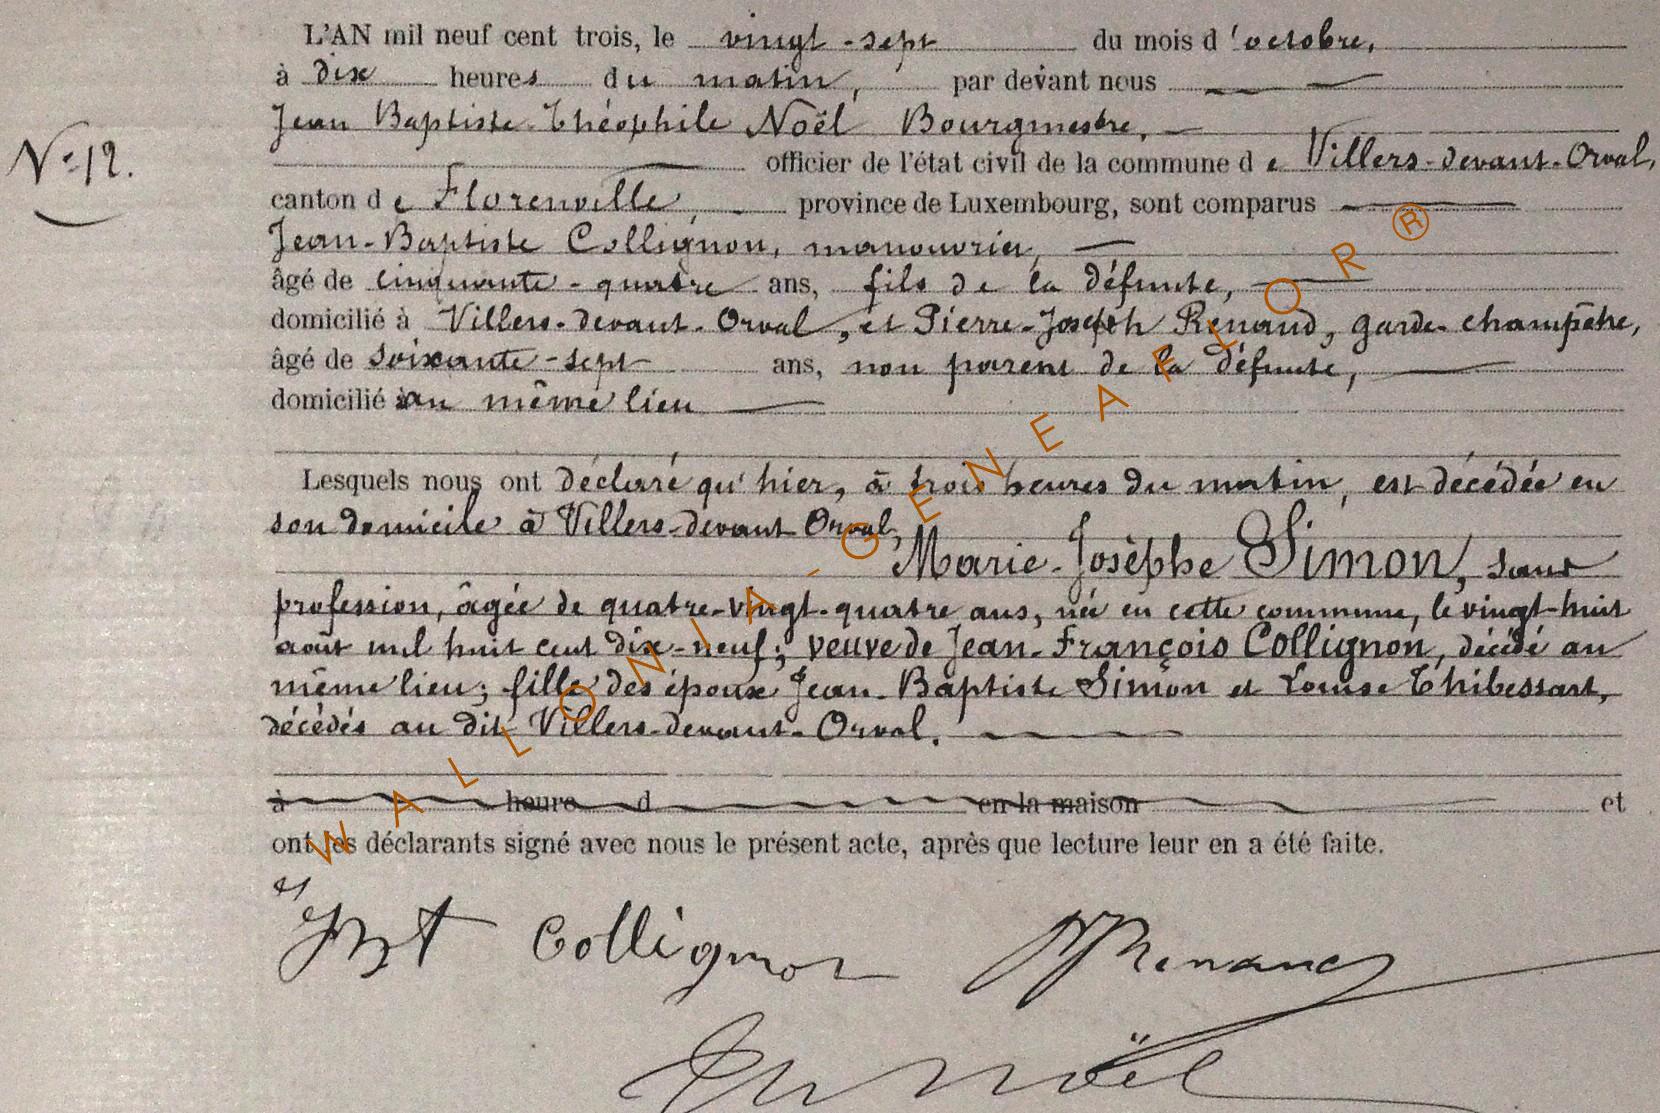 L'AN mil neuf cent trois, le vingt-sept du mois d'octobre,
à dix heures du matin, par devant nous
Jean Baptiste-Théophile Noël Bourgmestre,
N° 12.
officier de l'état civil de la commune de Villers-devant-Orval,
canton de Florenville, province de Luxembourg, sont comparus
Jean-Baptiste Collignon, manouvrier,
âgé de cinquante-quatre ans, fils de la défunte,
domicilié à Villers-devant-Orval, et Pierre-Joseph Renaud, garde-champêtre,
âgé de soixante-sept ans, non parent de la défunte,
domicilié au même lieu
Lesquels nous ont déclaré qu'hier, à trois heures du matin, est décédée en
son domicile à Villers-devant-Orval,
Marie-Josèphe Simon, sans
profession, âgée de quatre-vingt-quatre ans, née en cette commune, le vingt-huit
août mil huit cent dix-neuf; veuve de Jean-François Collignon, décédé au
même lieu; fille des époux Jean-Baptiste Simon et Louise Thibessart,
décédés au dit Villers-devant-Orval.
à heure d en la maison et
ont les déclarants signé avec nous le présent acte, après que lecture leur en a été faite.
JBt Collignon Renaud
Noël
WALLONIA-GENEAFLOR®